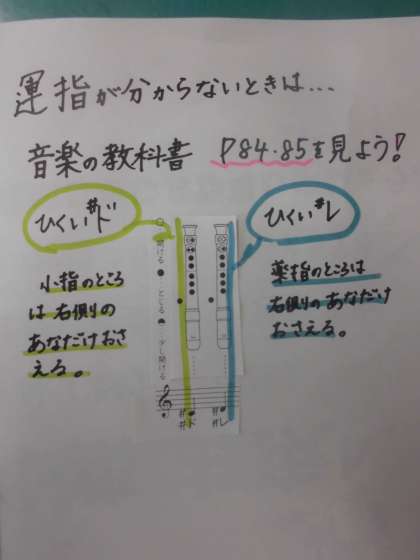 運指が分からないときは...
音楽の教科書 P84・85を見よう!
ひくい#ド
小指のところ
は右側の
あなだけおさ
える。
○…開ける ●…とじる …少し開ける
#ド
#レ
ひくい#レ
薬指のところは
右側のあなだけ
おさえる。